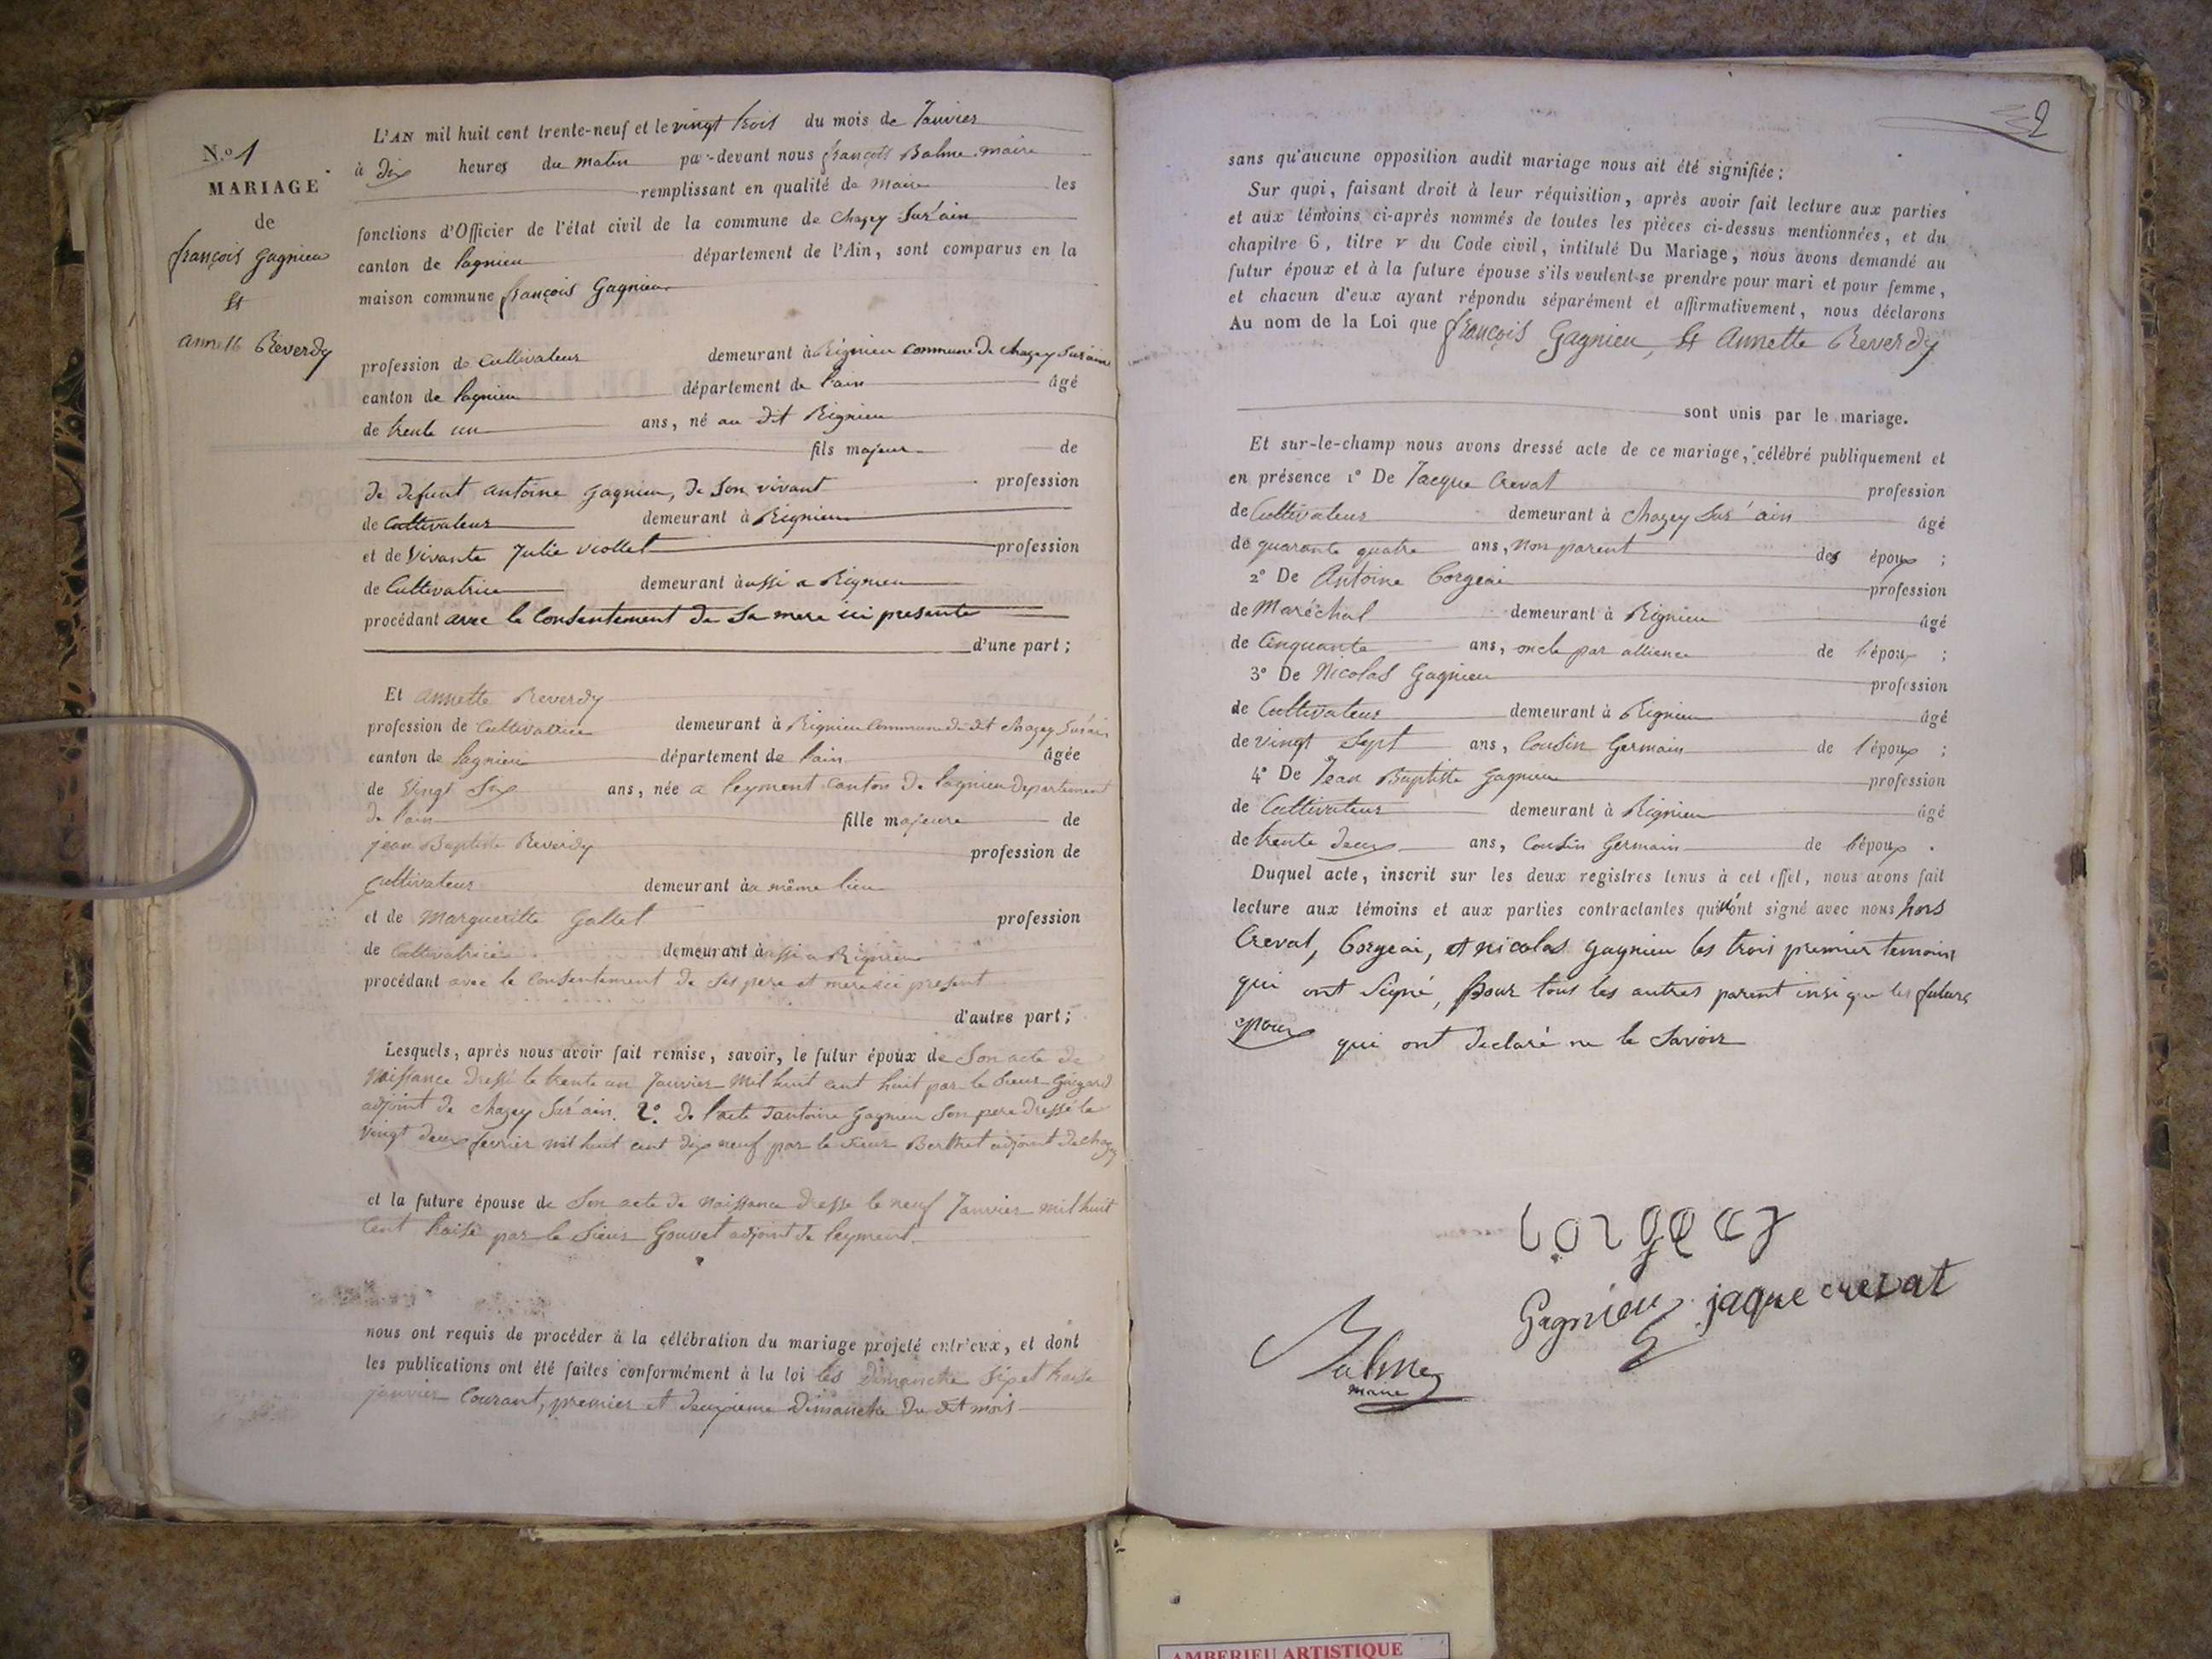 N.º 1
MARIAGE
de
françois Gagnieu
Et
annette Reverdy
L'AN mil huit cent trente-neuf et le vingt trois du mois de Janvier
à dix heures du matin par-devant nous françois Balme maire
remplissant en qualité de Maire les
fonctions d'Officier de l'état civil de la commune de Chazey Sur'ain
canton de lagnieu département de l'Ain, sont comparus en la
maison commune françois Gagnieu
profession de Cultivateur demeurant à Rignieu Commune de Chazey Sur'ain
canton de lagnieu département de l'ain âgé
de trente un ans, né au dit Rignieu
fils majeur de
de defunt antoine Gagnieu, de Son vivant profession
de Cultivateur demeurant à Rignieu
et de Vivante Julie viollet profession
de Cultivatrice demeurant àussi a Rignieu
procédant avec le Consentement de Sa mere ici presente
d'une part;
Et annette Reverdy
profession de Cultivatrice demeurant à Rignieu Commune du dit Chazey Sur'ain
canton de Lagnieu département de l'ain âgée
de Vingt Six ans, née a leyment canton de lagnieu departement
de l'ain fille majeure de
jean Baptiste Reverdy profession de
Cultivateur demeurant àu même lieu
et de Margueritte Gallet profession
de Cultivatrice demeurant àussi a Rignieu
procédant avec le Consentement de Ses pere et mere ici present
d'autre part;
Lesquels, après nous avoir fait remise, savoir, le futur époux de Son acte de
Naissance dressé le trente un Janvier Mil huit cent huit par le Sieur
adjoint de Chazey Sur'ain. 2.º de l'acte d'antoine Gagnieu Son pere dressé le
Vingt deux fevrier mil huit cent dix neuf par le sieur Berthet adjoint de Chazey
et la future épouse de Son acte de Naissance dresse le neuf Janvier mil huit
Cent traise par le Sieur Gouvet adjoint de leyment.
nous ont requis de procéder à la célébration du mariage projeté entr'eux, et dont
les publications ont été faites conformément à la loi les Dimanche Six et traise
janvier Courant, premier et deuxieme Dimanche du dit mois
2
sans qu'aucune opposition audit mariage nous ait été signifiée;
Sur quoi, faisant droit à leur réquisition, après avoir fait lecture aux parties
et aux témoins ci-après nommés de toutes les pièces ci-dessus mentionnées, et du
chapitre 6, titre v du Code civil, intitulé Du Mariage, nous avons demandé au
futur époux et à la future épouse s'ils veulent se prendre pour mari et pour femme,
et chacun d'eux ayant répondu séparément et affirmativement, nous déclarons
Au nom de la Loi que françois Gagnieu, Et Annette Reverdy
sont unis par le mariage.
Et sur-le-champ nous avons dressé acte de ce mariage, célébré publiquement et
en présence 1º De Jacque Crevat profession
de Cultivateur demeurant à Chazey Sur'ain âgé
de quarante quatre ans, non parent des époux ;
2º De Antoine Corgeai profession
de Maréchal demeurant à Rignieu âgé
de Cinquante ans, oncle par alliance de l'époux ;
3º De Nicolas Gagnieu profession
de Cultivateur demeurant à Rignieu âgé
de vingt Sept ans, Cousin Germain de l'époux ;
4º De Jean Baptiste Gagnieu profession
de Cultivateur demeurant à Rignieu âgé
de trente deux ans, Cousin Germain de l'époux .
Duquel acte, inscrit sur les deux registres tenus à cet effet, nous avons fait
lecture aux témoins et aux parties contractantes qui n'ont signé avec nous hors
Crevat, Corgeai, et nicolas gagnieu les trois premier temoins
qui ont Signé, pour tous les autres parent insi que les futurs
epoux qui ont declaré ne le Savoir
Corgeay
Gagnieu jaque crevat
Balme
maire
AMBERIEU ARTISTIQUE